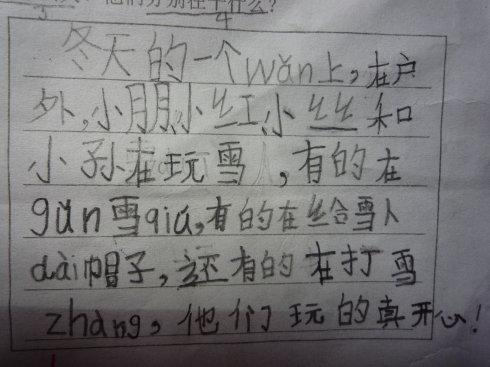 他们分别在干什么?
冬天的一个wǎn上,在户
外,小朋小红小丝丝和
小孙在玩雪,有的在
gǔn雪qiú,有的在给雪人
dài帽子,还有的在打雪
zhàng,他们玩的真开心!